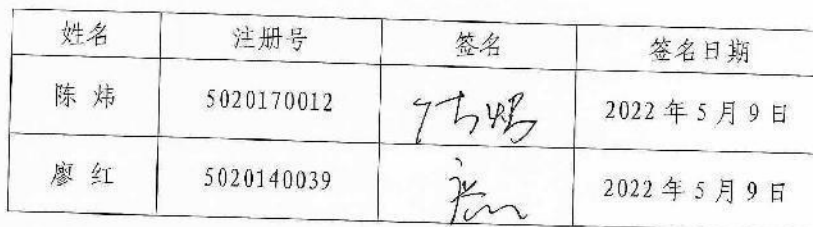 姓名 注册号 签名 签名日期
陈 炜 5020170012 2022 年 5 月 9 日
廖 红 5020140039 2022 年 5 月 9 日